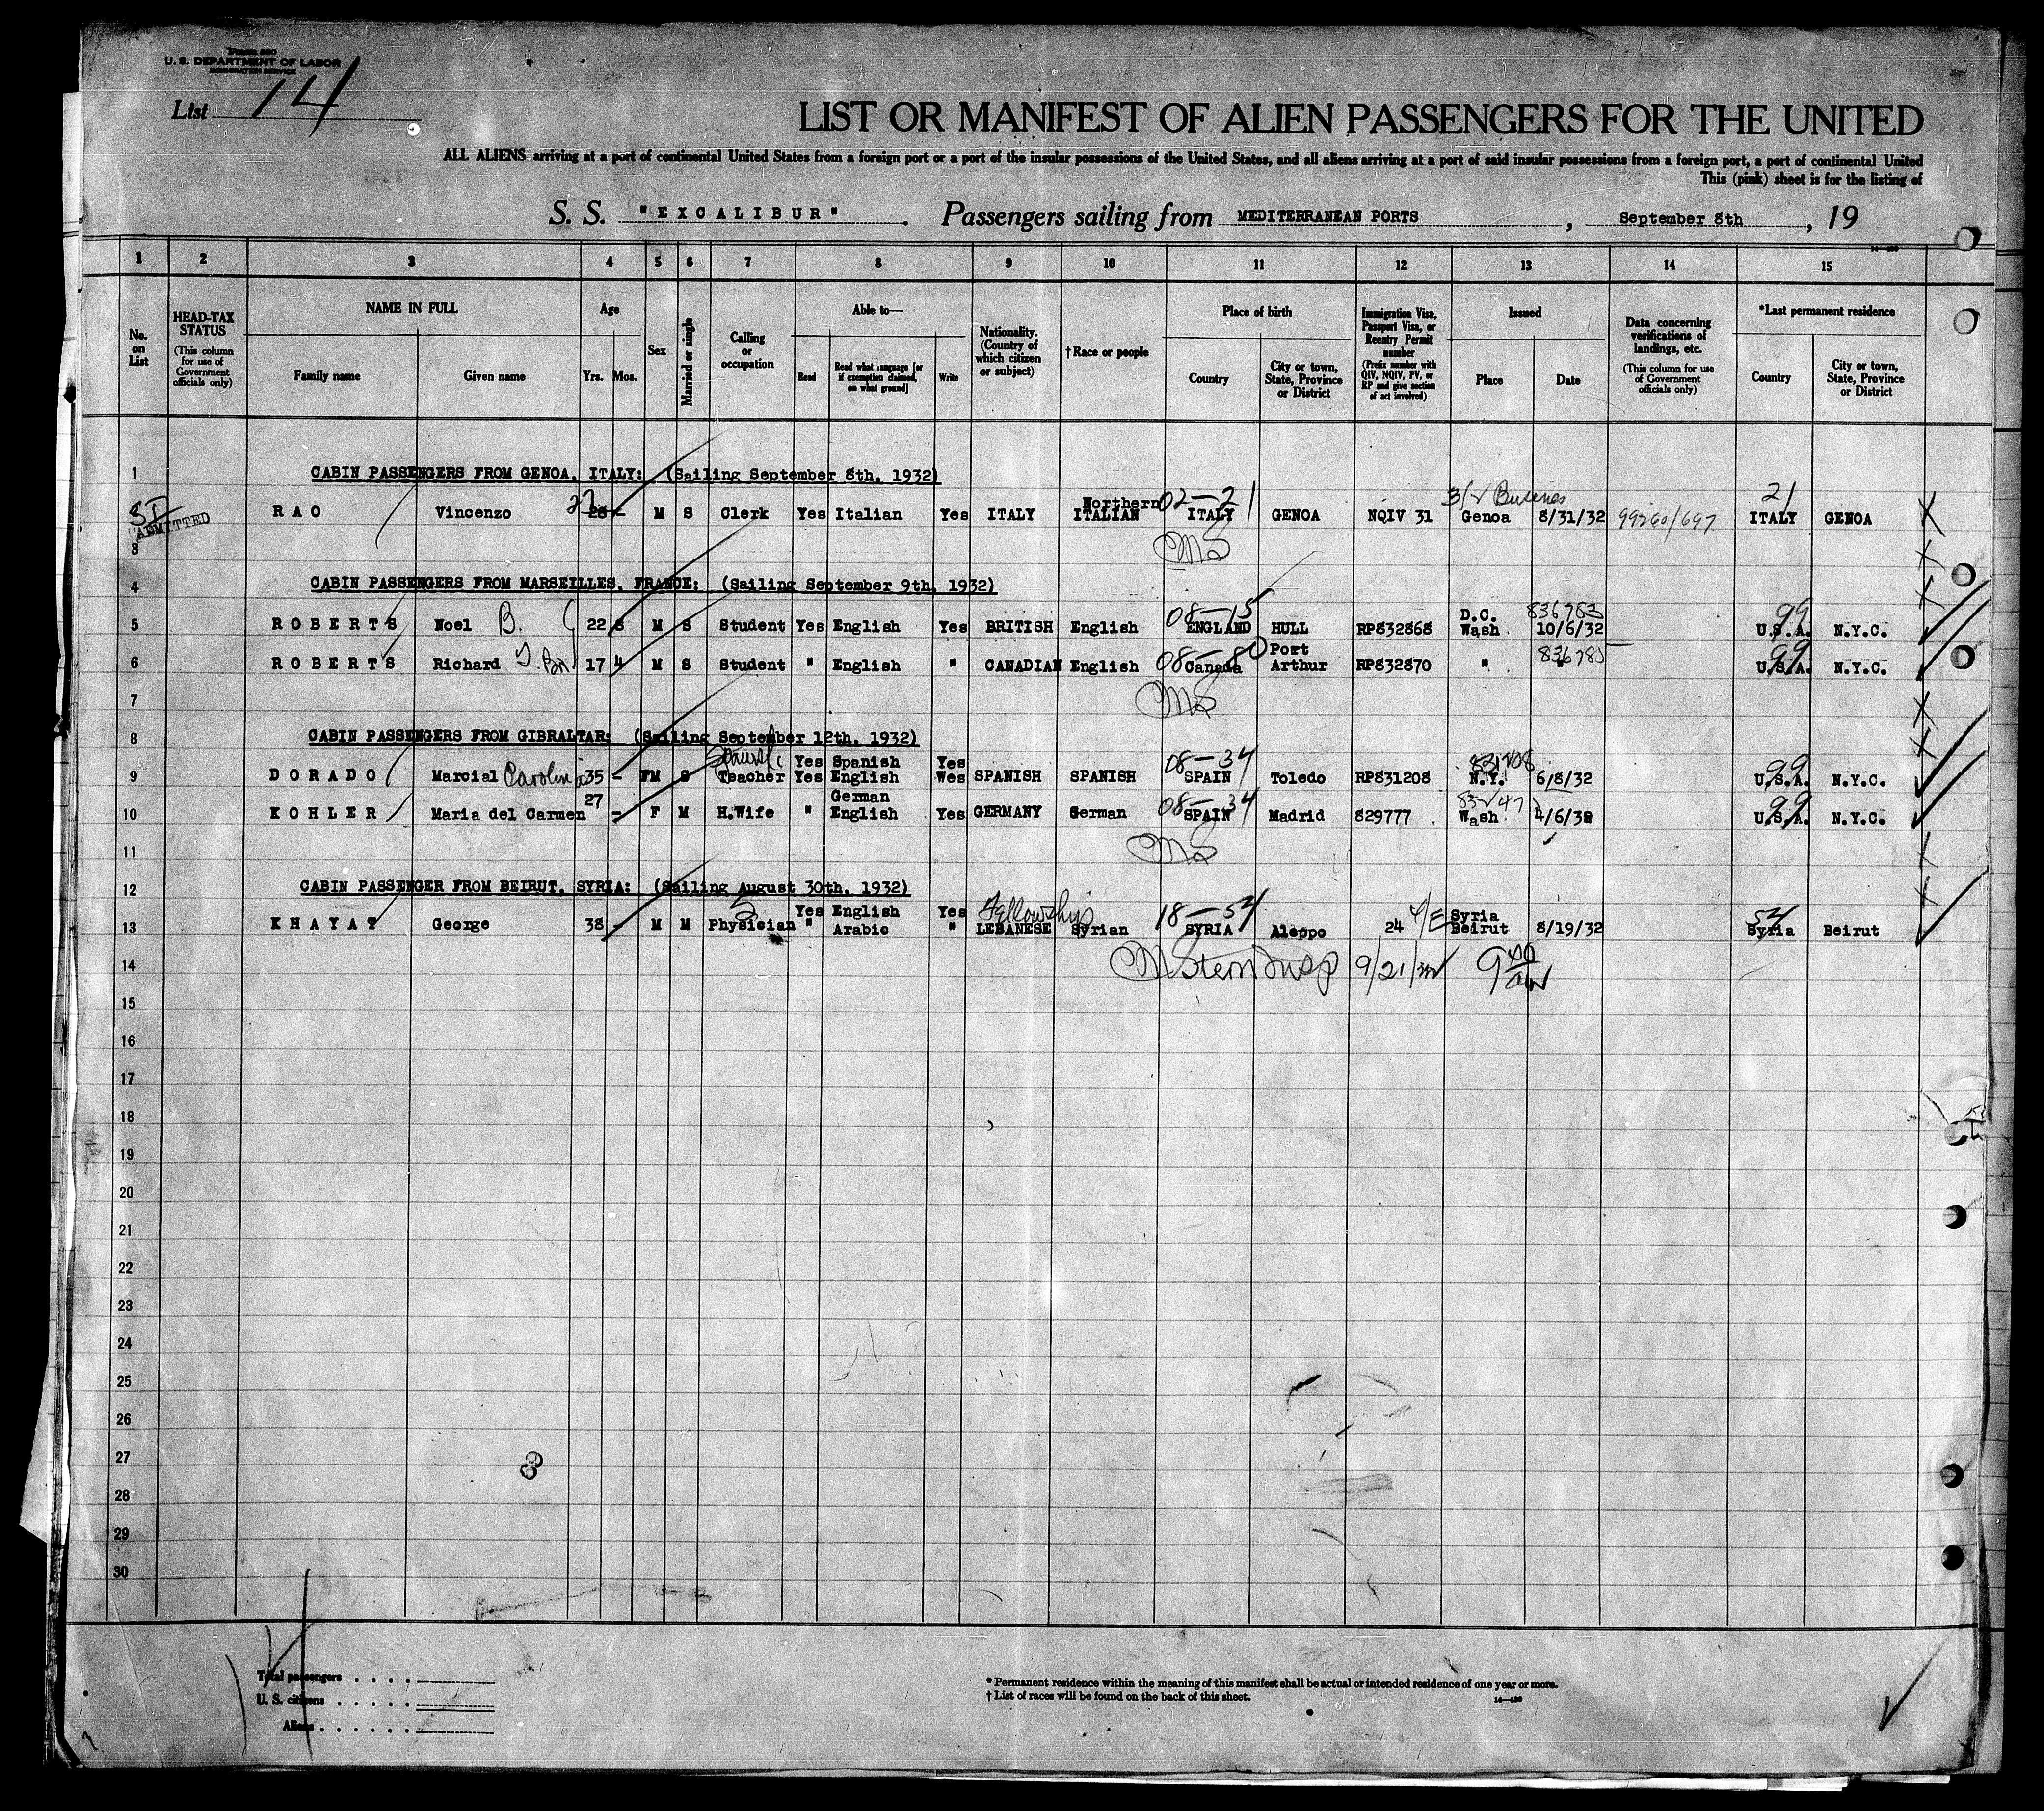 Form 500
U. S. DEPARTMENT OF LABOR
IMMIGRATION SERVICE
List 14
LIST OR MANIFEST OF ALIEN PASSENGERS FOR THE UNITED
ALL ALIENS arriving at a port of continental United States from a foreign port or a port of the insular possessions of the United States, and all aliens arriving at a port of said insular possessions from a foreign port, a port of continental United
This (pink) sheet is for the listing of
S. S. "EXCALIBUR" . Passengers sailing from MEDITERRANEAN PORTS , September 8th , 19
1 2 3 4 5 6 7 8 9 10 11 12 13 14 15
No. on List
HEAD-TAX STATUS (This column for use of Government officials only)
NAME IN FULL
Family name Given name
Age
Yrs. Mos.
Sex
Married or single
Calling or occupation
Able to—
Read Read what language [or if exemption claimed, on what ground] Write
Nationality. (Country of which citizen or subject)
† Race or people
Place of birth
Country City or town, State, Province or District
Immigration Visa, Passport Visa, or Reentry Permit number (Prefix number with QIV, NQIV, PV, or RP and give section of act involved)
Issued
Place Date
Data concerning verifications of landings, etc. (This column for use of Government officials only)
*Last permanent residence
Country City or town, State, Province or District
1 CABIN PASSENGERS FROM GENOA, ITALY: (Sailing September 8th, 1932)
Northern 02-21 Business 21
SI RAO Vincenzo 27 - M S Clerk Yes Italian Yes ITALY ITALIAN ITALY GENOA NQIV 31 Genoa 8/31/32 99260/697 ITALY GENOA
ADMITTED
3 CMS
4 CABIN PASSENGERS FROM MARSEILLES, FRANCE: (Sailing September 9th, 1932)
08-15 D.C. 836783 99
5 ROBERTS Noel B. 22 8 M S Student Yes English Yes BRITISH English ENGLAND HULL RP832868 Wash 10/6/32 U.S.A. N.Y.C.
08-80 Port 836785 99
6 ROBERTS Richard 17 4 M S Student " English " CANADIAN English Canada Arthur RP832870 " " U.S.A. N.Y.C.
7 CMS
8 CABIN PASSENGERS FROM GIBRALTAR: (Sailing September 12th, 1932)
Spanish Yes Spanish Yes 08-34 831208 99
9 DORADO Marcial Carolina 35 - FM S Teacher Yes English Wes SPANISH SPANISH SPAIN Toledo RP831208 N.Y. 6/8/32 U.S.A. N.Y.C.
27 German 08-34 99
10 KOHLER Maria del Carmen - F M H.Wife " English Yes GERMANY German SPAIN Madrid 829777 Wash 4/6/32 U.S.A. N.Y.C.
11 CMS
12 CABIN PASSENGER FROM BEIRUT, SYRIA: (Sailing August 30th, 1932)
5 Yes English Yes Fellowship 18-54 4/E Syria 54
13 KHAYAT George 38 - M M Physician " Arabic " LEBANESE Syrian SYRIA Aleppo 24 Beirut 8/19/32 Syria Beirut
14 CM Stern Insp 9/21/32 9 50 AM
15
16
17
18
19
20
21
22
23
24
25
26
27
28
29
30
Total passengers . . . .
U. S. citizens . . . . .
Aliens . . . . . .
* Permanent residence within the meaning of this manifest shall be actual or intended residence of one year or more.
† List of races will be found on the back of this sheet.
14—430